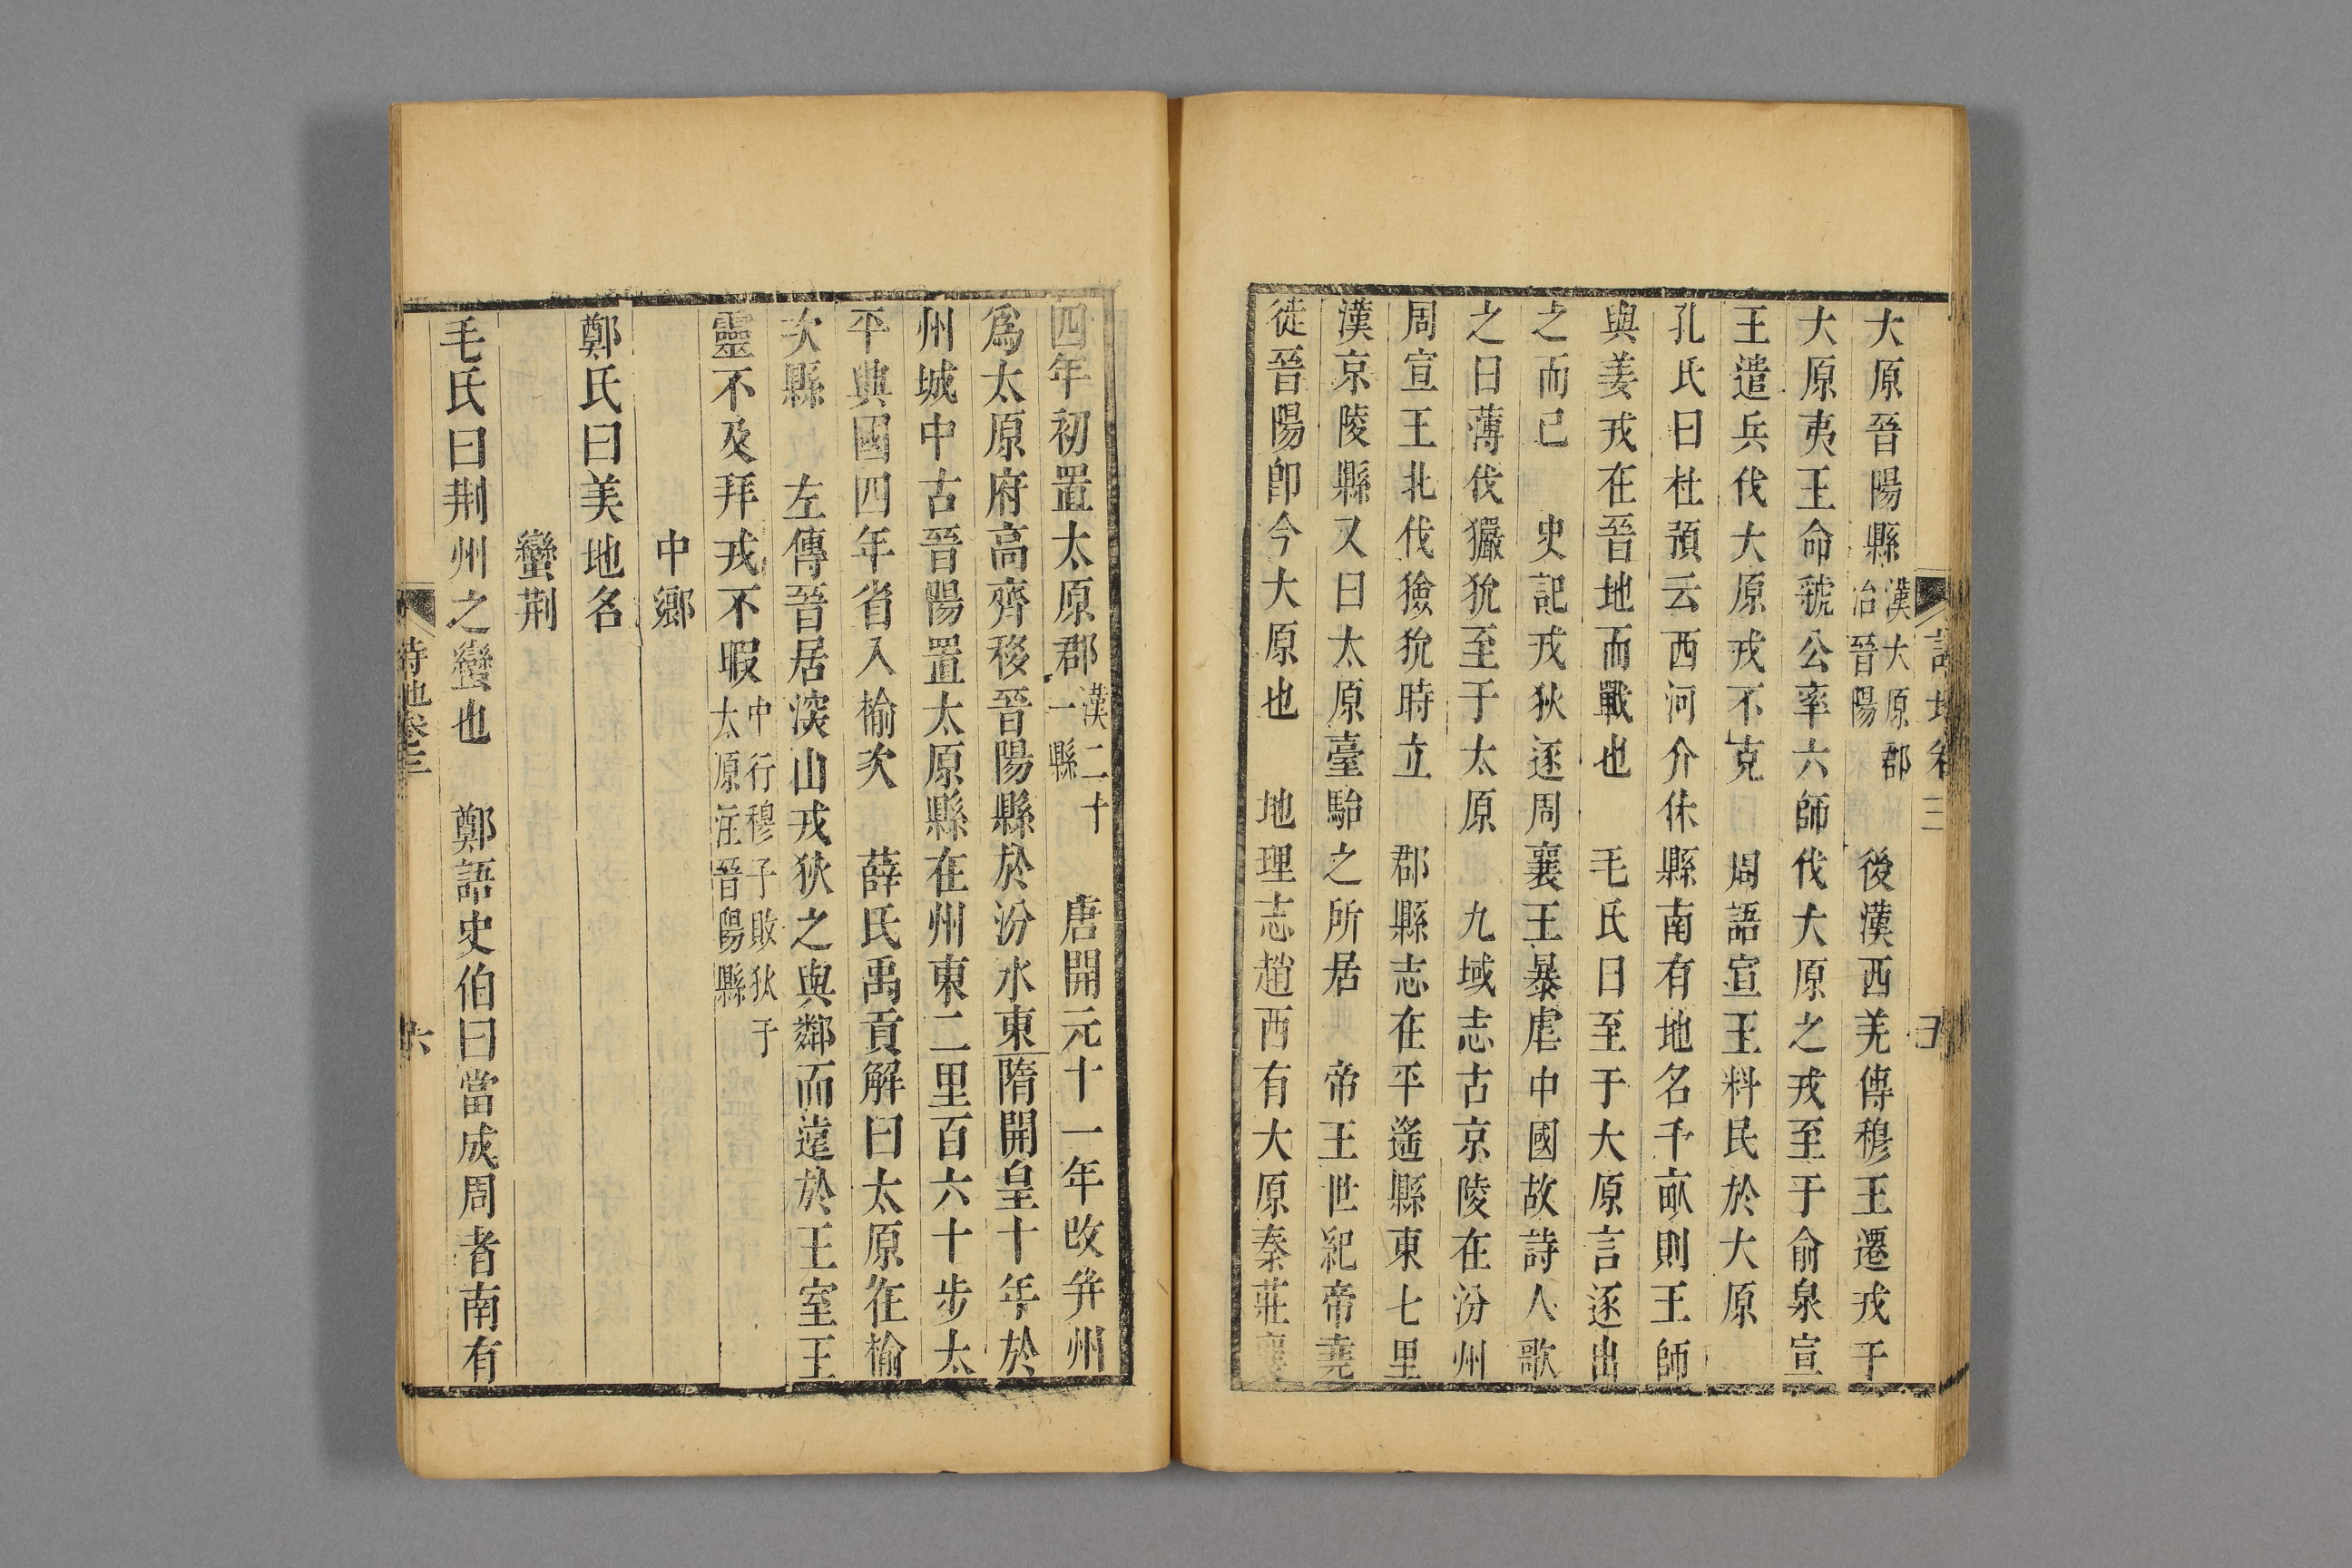 大原晉陽縣漢大原郡治晉陽 後漢西羌傳穆王遷戎于
大原夷王命虢公率六師伐大原之戎至于俞泉宣
王遣兵伐大原戎不克 周語宣王料民於大原
孔氏曰杜預云西河介休縣南有地名千畝則王師
與姜戎在晉地而戰也 毛氏曰至于大原言逐出
之而已 史記戎狄逐周襄王暴虐中國故詩人歌
之曰薄伐玁狁至于太原 九域志古京陵在汾州
周宣王北伐獫狁時立 郡縣志在平遙縣東七里
漢京陵縣又曰太原臺駘之所居 帝王世紀帝堯
徒晉陽卽今大原也 地理志趙西有大原秦莊襄
四年初置太原郡漢二十一縣 唐開元十一年改并州
爲太原府高齊移晉陽縣於汾水東隋開皇十年於
州城中古晉陽置太原縣在州東二里百六十步太
平典國四年省入榆次 薛氏禹貢解曰太原在榆
次縣 左傳晉居深山戎狄之與鄰而遠於王室王
靈不及拜戎不暇中行穆子敗狄于太原注晉陽縣
中鄉
鄭氏曰美地名
蠻荆
毛氏曰荆州之蠻也 鄭語史伯曰當成周者南有
詩地卷三 六